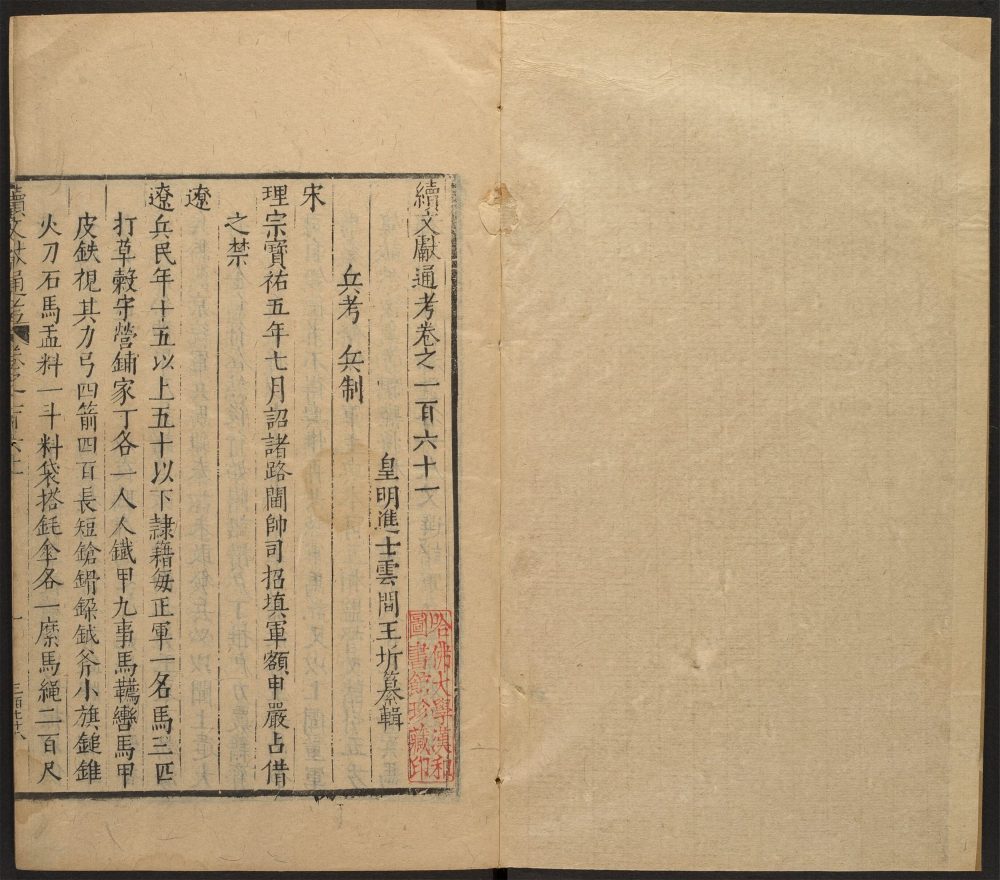 續文獻通考卷之一百六十一
皇明進士雲間王圻纂輯
哈佛大學漢和
圖書館珍藏印
兵考 兵制
宋
理宗寶祐五年七月詔諸路閫帥司招填軍額申嚴占借
之禁
遼
遼兵民年十五以上五十以下隸籍每正軍一名馬三匹
打草穀守營鋪家丁各一人人鐵甲九事馬韉轡馬甲
皮鉄視其力弓四箭四百長短鎗鍋鏁鉞斧小旗鎚錐
火刀石馬盂料一斗料袋搭𣬠傘各一縻馬繩二百尺
續文獻通考 卷之一百六十一
一